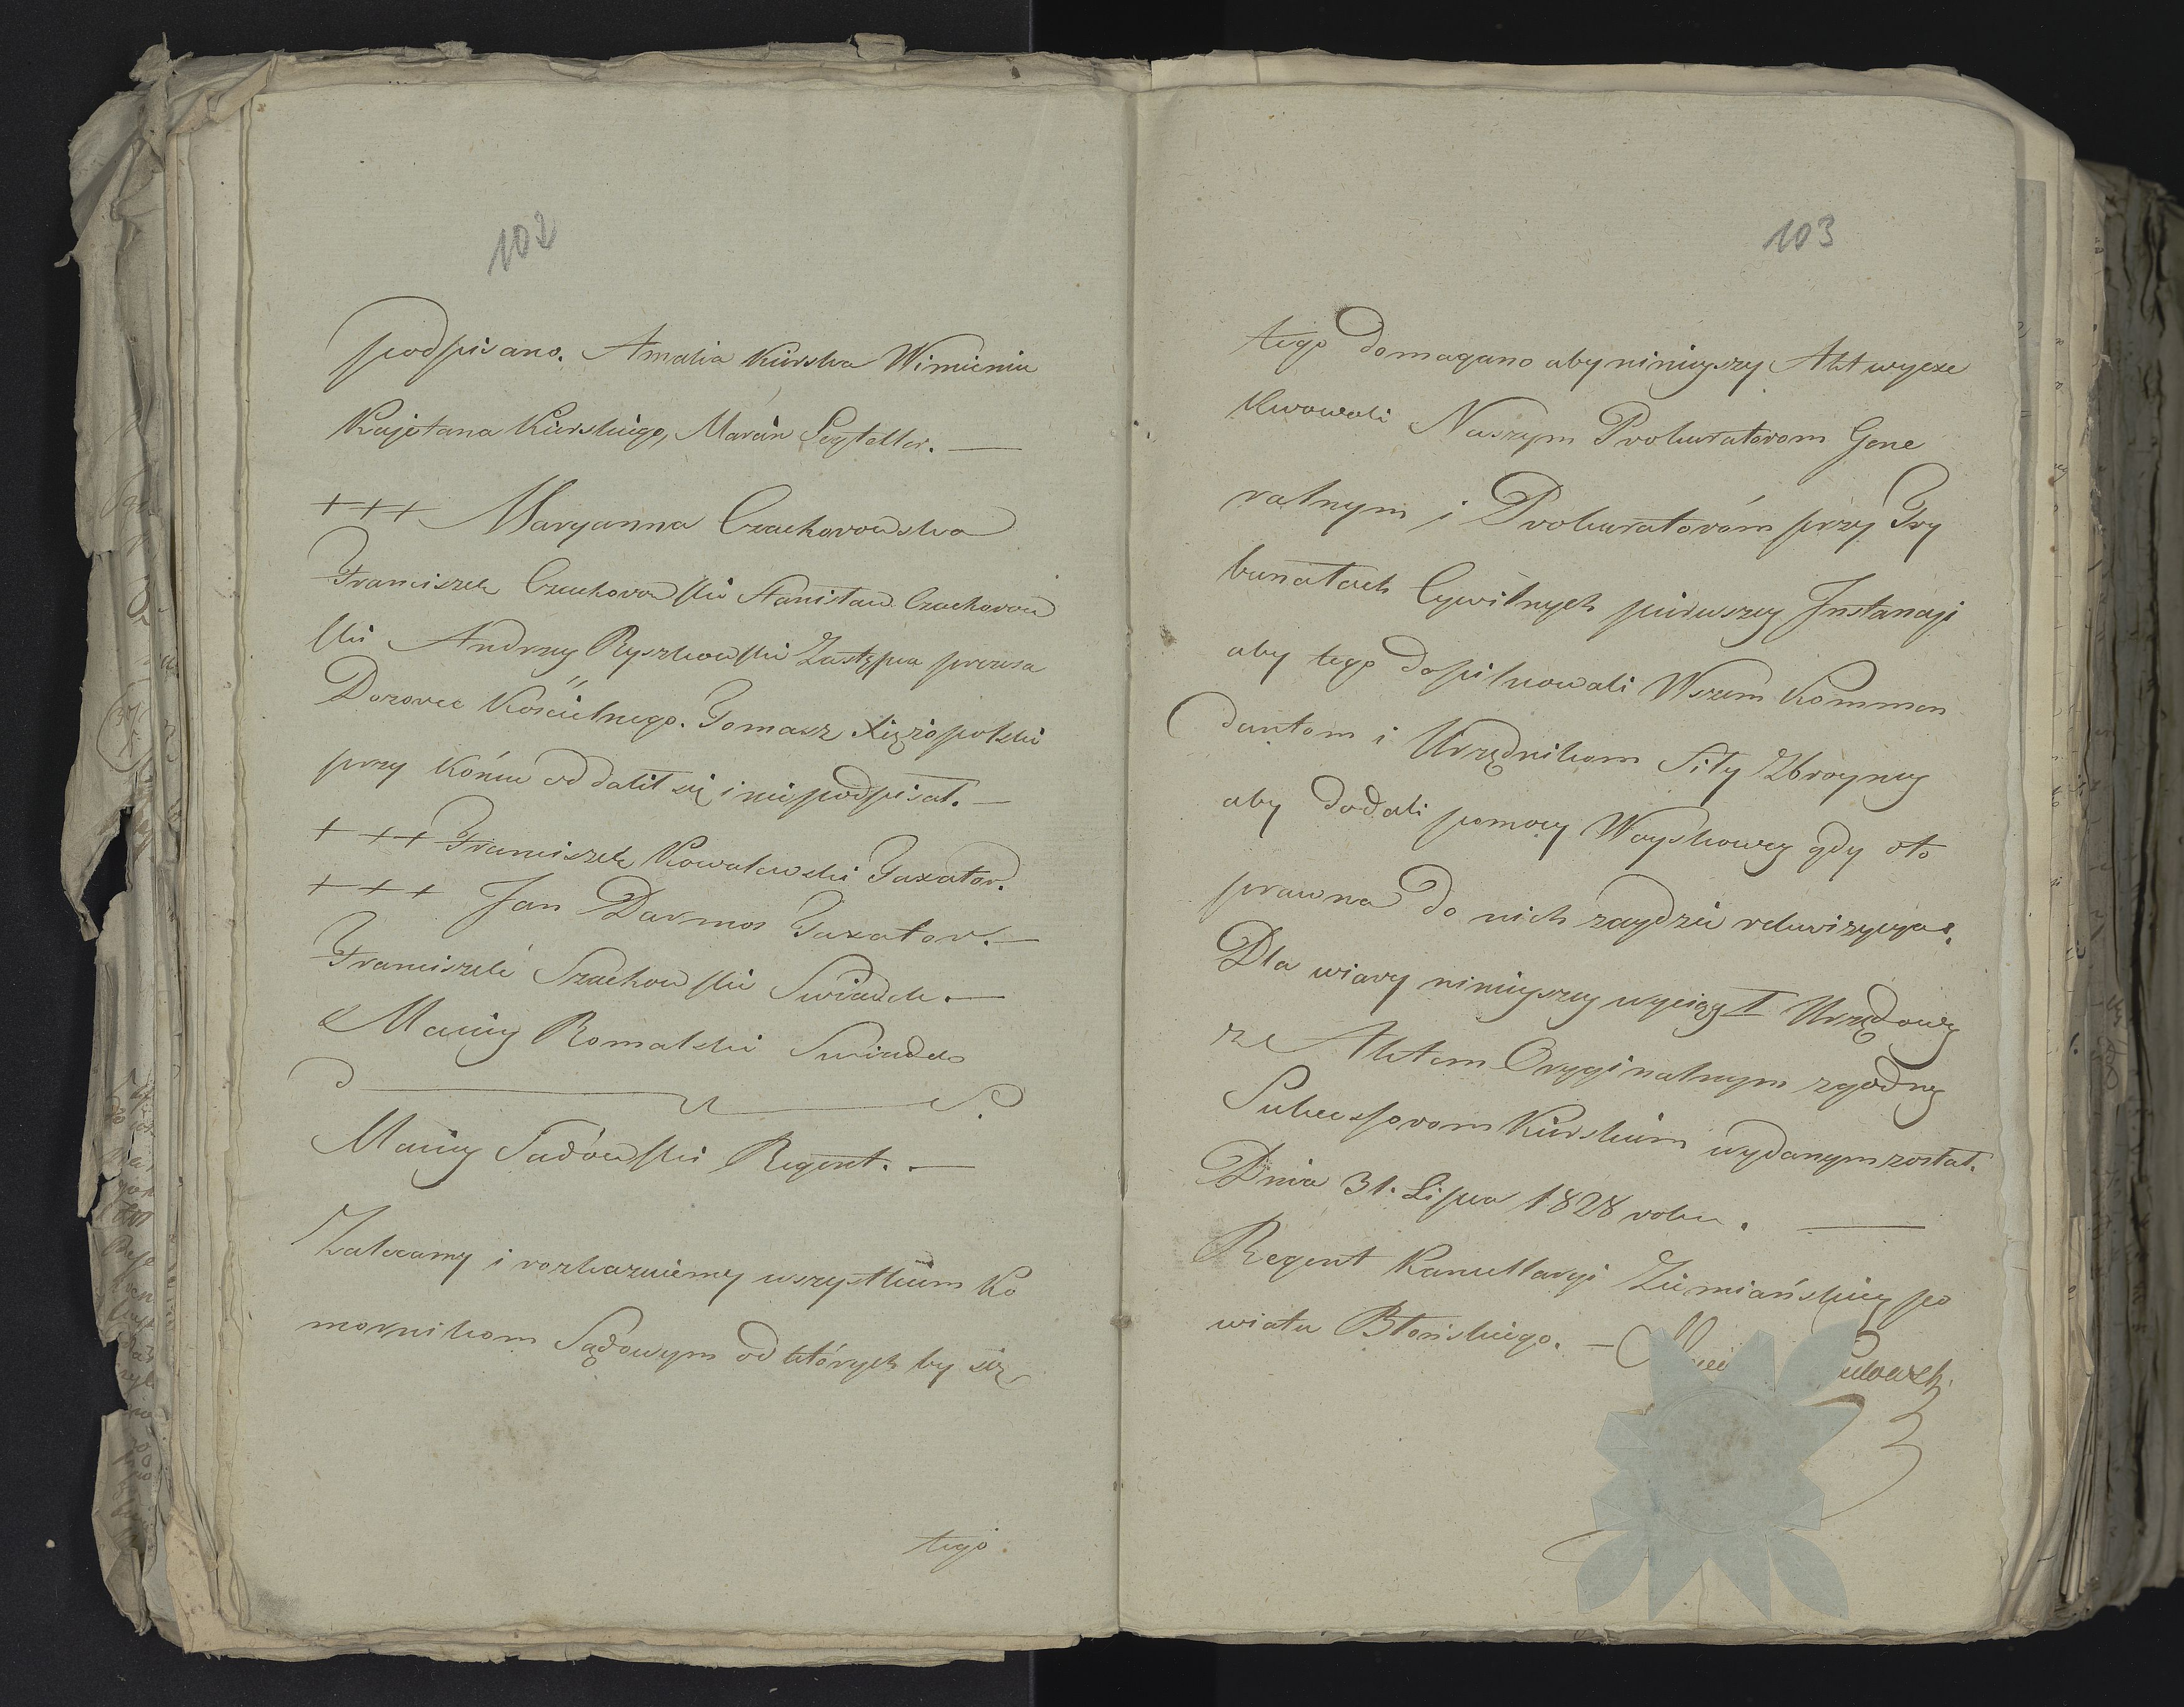 102
podpisano. Amalia Kürska Wimieniu
Kajetana Kürskiego, Marcin Segteller. —
+++ Maryanna Czachorowska
Franciszek Czachorowski Stanisław Czachorow
ski Andrzey Ryszkowski Zastępca prezesa
Dozoru Kościelnego. Tomasz Xiężopolski
przy Końcu oddalił się i nie podpisał. —
+++ Franciszek Kowalewski Taxator.
+++ Jan Darmos Taxator. —
Franciszek Szachowski Swiadek. —
Maciey Romalski Swiadek
Maciey Sadowski Regent. —
Zalecamy i rozkazuiemy wszystkim Ko
mornikom Sądowym od których by się
tego
103
tego domagano aby ninieyszy Akt wyexe
kwowali Naszym Prokuratorom Gene
ralnym i Prokuratoróm przy Try
bunałach Cywilnych pierwszey Instancyi
aby tego dopilnowali Wszem Kommen
dantom i Urzędnikom Siły Zbroyney
aby dodali pomocy Woyskowey gdy oto
prawna do nich zaydzie rekwizycya.
Dla wiary ninieyszy wyciąg I Urzędowy
ze Aktem Oryginalnym zgodny
Sukcessorom Kürskim wydanym został.
Dnia 31. Lipca 1828 roku. —
Regent Kancellaryi Ziemiańskiey po
wiatu Błońskiego. —